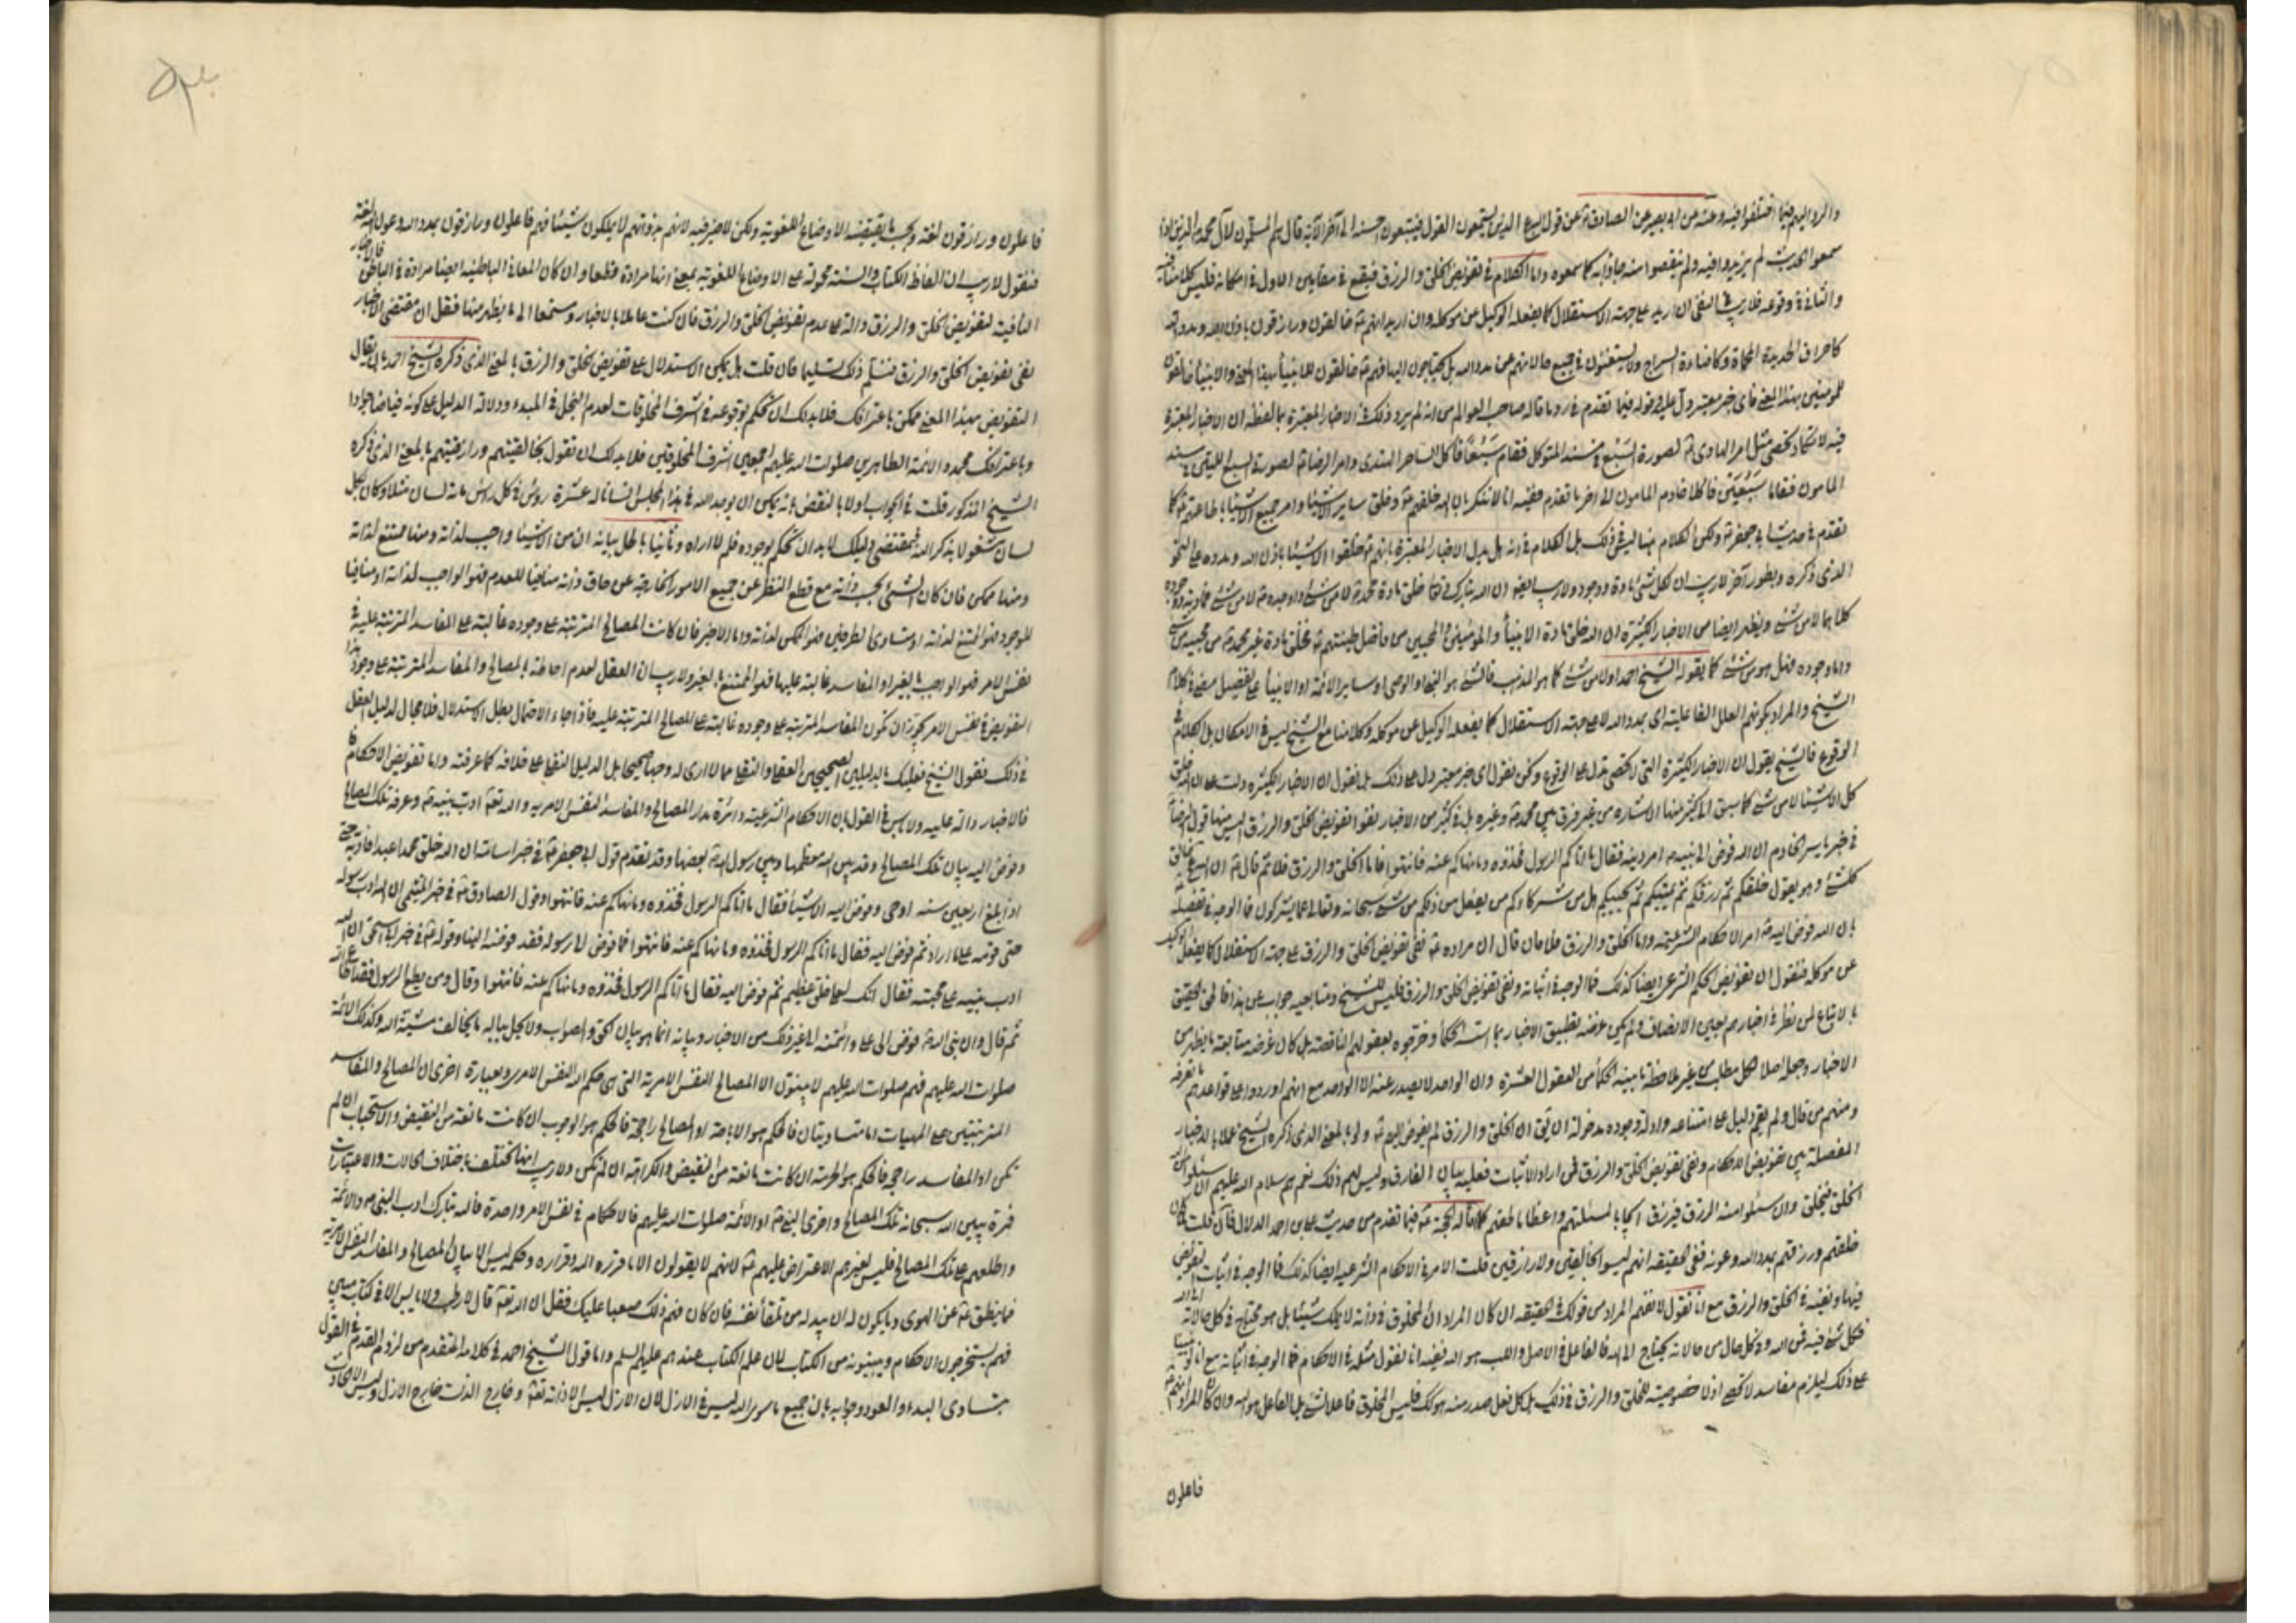 والرد اليهم فيما اختلفوا فيه وعنه عن ابي بصير عن الصادق ع عن قول الله الذين يستمعون القول فيتبعون احسنه الى آخر الآية قال هم المسلمون لآل محمد الذين اذا
سمعوا الحديث لم يزيدوا فيه ولم ينقصوا منه جاؤا به كما سمعوه واما الكلام في تفويض الخلق والرزق فيقع في مقامين الاول في امكانه فليس كلامنا فيه
والثاني في وقوعه فلا ريب في النفي ان اريد على جهة الاستقلال كما يفعله الوكيل من موكله وان اريد انهم ع خالقون ورازقون باذن الله ومدده
كاحراق الحديدة المحماة وكاضاءة السراج ولا يستغنون في جميع حالاتهم عن مدد الله بل يحتاجون اليه فهم ع خالقون للانبياء بهذا المعنى والانبياء خالقون
للمؤمنين بهذا المعنى فاى خبر معتبر دل عليه قوله فيما تقدم في رد ما قاله صاحب العوالم من انه لم يرد ذلك في الاخبار المعتبرة ما لفظه ان الاخبار المعتبرة
فيه لا تكاد تحصى مثل امر الهادى ع لصورة السبع في مسند المتوكل فقام سبعا فاكل الساحر الهندى وامر الرضا ع لصورة السبع اللتين في مسند
المامون فقاما سبعين فاكلا خادم المامون الى اخر ما تقدم ففيه انا لا ننكر بان الله خلقهم ع وخلق ساير الاشياء وامر جميع الاشياء بطاعتهم ع كما
تقدم في حديث ابي جعفر ع ولكن الكلام هنا ليس في ذلك بل الكلام في انه هل يدل الاخبار المعتبرة بانهم ع خلقوا الاشياء باذن الله ومدده على النحو
الذى ذكره وبطور آخر لا ريب ان لكل شئ مادة ووجود ولا ريب ايضا ان الله تبارك وتعالى خلق مادة محمد ع لا من شئ واوجده ع لا من شئ فمادته ووجوده
كلاهما لا من شئ ويظهر ايضا من الاخبار الكثيرة ان الله خلق مادة الانبياء والمؤمنين المحبين من فاضل طينتهم ع فخلق مادة غير محمد ع من محبيه من شئ
واما وجوده فهل هو من شئ كما يقوله الشيخ احمد او لا من شئ كما هو المذهب فالشئ هو النبي او الوصي او ساير الائمة او الانبياء على تفصيل مضى في كلام
الشيخ والمراد بكونهم العلل الفاعلية اى بمدد الله لا على جهة الاستقلال كما يفعله الوكيل عن موكله وكلامنا مع الشيخ ليس في الامكان بل الكلام في
الوقوع فالشيخ يقول ان الاخبار الكثيرة التي لا تحصى تدل على الوقوع ونحن نقول اى خبر معتبر دل على ذلك بل نقول ان الاخبار الكثيرة دلت على ان الله خلق
كل الاشياء لا من شئ كما سبق الى كثير منها الاشاره من غير فرق بين محمد ع وغيره بل في كثير من الاخبار نفوا تفويض الخلق والرزق اليس منها قول الرضا ع
في خبر ياسر الخادم ان الله فوض الى نبيه ص امر دينه فقال ما اتاكم الرسول فخذوه وما نهاكم عنه فانتهوا فاما الخلق والرزق فلا ثم قال ع ان الله خالق
كل شئ وهو يقول خلقكم ثم رزقكم ثم يميتكم ثم يحييكم هل من شركاءكم من يفعل من ذلكم من شئ سبحانه وتعالى عما يشركون فما الوجه في تفصيله ع
بان الله فوض اليه ع امر الاحكام الشرعية واما الخلق والرزق فلا فان قال ان مراده ع نفي تفويض الخلق والرزق على جهة الاستقلال كما يفعل الوكيل
عن موكله فنقول ان تفويض الحكم الشرعي ايضا كذلك فما الوجه في اثباته ونفى تفويض الخلق والرزق فليس للشيخ ومتابعيه جواب عن هذا فالحق الحقيق
بالاتباع لمن نظر في اخبارهم بعين الانصاف ولم يكن غرضه تطبيق الاخبار بما اسسه الحكماء وخرقوه بعقولهم الناقصة بل كان غرضه متابعة ما يظهر من
الاخبار وجعله اصلا لكل مطلب من غير ملاحظة ما بينه الحكماء من العقول العشرة وان الواحد لا يصدر عنه الا الواحد مع انهم اوردوا على قواعدهم ما تعرفه
ومنهم من قال ولم يقم دليل على امتناعه وادلة وجوده مدخولة ان يقال ان الخلق والرزق لم يفوض اليهم ع ولو بالمعنى الذى ذكره الشيخ عملا بالاخبار
المفصلة بين تفويض الاحكام ونفى تفويض الخلق والرزق فمن اراد الاثبات فعليه ببيان الفارق وليس لهم ذلك نعم هم سلام الله عليهم ان سئلوا من الله
الخلق فيخلق وان سئلوا منه الرزق فيرزق ايجابا لمسئلتهم واعظاما لحقهم كما قاله الحجة ع فيما تقدم من حديث علي بن احمد الدلال فان قلت ان كان
خلقهم ورزقهم بمدد الله وعونه ففى الحقيقة انهم ليسوا بخالقين ولا رازقين قلت الامر في الاحكام الشرعيه ايضا كذلك فما الوجه في اثبات التفويض
فيها ونفيه في الخلق والرزق مع انا نقول لا نفهم المراد من قولك في الحقيقة ان كان المراد ان المخلوق في ذاته لا يملك شيئا بل هو محتاج في كل حالاته الى الله
فكل شئ فيه من الله وفي كل حال من حالاته يحتاج الى الله فالفاعل في الاصل والسبب هو الله ففيه انا نقول مثله في الاحكام فما الوجه في اثباته مع انا لو بنينا
على ذلك ليلزم مفاسد لا تحصى اذ لا خصوصية للخلق والرزق في ذلك بل كل فعل صدر منه هو كذلك فليس المخلوق فاعلا لشئ بل الفاعل هو الله وان كان المراد انهم
فاعلون
فاعلون ورازقون لغة وبحسب ما يقتضيه الاوضاع اللغوية ولكن لا ضير فيه لانهم بذواتهم لا يملكون شيئا فهم فاعلون ورازقون بمدد الله وعونه لغة
فنقول لا ريب ان الفاظ الكتاب والسنة محمولة على الاوضاع اللغوية بمعنى انها مرادة قطعا وان كان المعاني الباطنية ايضا مرادة في الباطن فالاخبار
النافية لتفويض الخلق والرزق دالة على عدم تفويض الخلق والرزق فان كنت عاملا بالاخبار ومستمعا الى ما يظهر منها فقل ان مقتضى الاخبار
نفى تفويض الخلق والرزق فنسلم ذلك تسليما فان قلت بل يمكن الاستدلال على تفويض الخلق والرزق بالمعنى الذى ذكره الشيخ احمد بان يقال
التفويض بهذا المعنى ممكن باعترافك فلا بد لك ان تحكم بوقوعه في اشرف المخلوقات لعدم البخل في المبدء ودلالة الدليل على كونه فياضا جوادا
وباعترافك محمد والائمة الطاهرين صلوات الله عليهم اجمعين اشرف المخلوقين فلا بد لك ان تقول بخالقيتهم ورازقيتهم بالمعنى الذى ذكره
الشيخ المذكور قلت في الجواب اولا بالنقض بانه يمكن ان يوجد الله في هذا المجلس انسانا له عشرة روس في كل رأس مائة لسان مثلا وكان كل
لسان مشغولا بذكر الله فبمقتضى دليلك لا بد ان تحكم بوجوده فلم لا اراه وثانيا بالحل بيانه ان من الاشياء واجب لذاته ومنها ممتنع لذاته
ومنها ممكن فان كان الشئ بحسب ذاته مع قطع النظر عن جميع الامور الخارجة عن حاق ذاته منافيا للعدم فهو الواجب لذاته او منافيا
للوجود فهو الممتنع لذاته او متساوى الطرفين فهو الممكن لذاته واما الاخير فان كانت المصالح المترتبة على وجوده غالبة على المفاسد المترتبة عليه في
نفس الامر فهو الواجب بالغير او المفاسد غالبة عليها فهو الممتنع بالغير ولا ريب ان العقل لعدم احاطته بالمصالح والمفاسد المترتبة على وجود هذا
التفويض في نفس الامر يجوز ان تكون المفاسد المترتبة على وجوده غالبة على المصالح المترتبة عليه فاذا جاء الاحتمال بطل الاستدلال فلا مجال لدليل العقل في
ذلك فقول الشيخ فعليك بالدليلين الصحيحين العقلي والنقلي مما لا ارى له وجها صحيحا بل الدليل النقلي على خلافه كما عرفته واما تفويض الاحكام
فالاخبار دالة عليه ولا باس في القول بان الاحكام الشرعية دائرة مدار المصالح والمفاسد النفس الامريه والله تعالى ادب نبيه ص وعرفه تلك المصالح
وفوض اليه بيان تلك المصالح وقد بين الله معظمها وبين رسول الله ص بعضها وقد تقدم قول ابي جعفر ع في خبر اسانات ان الله خلق محمدا عبدا فادبه حتى
اذا بلغ اربعين سنه اوحى وفوض اليه الاشياء فقال ما اتاكم الرسول فخذوه وما نهاكم عنه فانتهوا وقول الصادق ع في خبر الميثمي ان الله ادب رسوله
حتى قومه على ما اراد ثم فوض اليه فقال ما اتاكم الرسول فخذوه وما نهاكم عنه فانتهوا فما فوض الى رسوله فقد فوضه الينا وقوله ع في خبر ابي اسحق ان الله
ادب نبيه على محبته فقال انك لعلى خلق عظيم ثم فوض اليه فقال ما اتاكم الرسول فخذوه وما نهاكم عنه فانتهوا وقال ومن يطع الرسول فقد اطاع الله
ثم قال وان نبي الله ص فوض الى علي وائتمنه الى غير ذلك من الاخبار وبيانه انما هو بيان الحق والصواب ولا يحل بباله ما يخالف مشية الله وكذلك الائمة
صلوات الله عليهم فهم صلوات الله عليهم لا يبينون الا المصالح النفس الامرية التي هي حكم الله النفس الامرى وبعبارة اخرى ان المصالح والمفاسد
المترتبتين على المهيات اما متساويتان فالحكم هو الاباحة او المصالح راجحة فالحكم هو الوجوب ان كانت مانعة من النقيض والاستحباب ان لم
تكن او المفاسد راجحة فالحكم هو الحرمة ان كانت مانعة من النقيض والكراهة ان لم تكن ولا ريب انها تختلف باختلاف الحالات والاعتبارات
فمرة يبين الله سبحانه تلك المصالح واخرى النبي ص او الائمة صلوات الله عليهم فالاحكام في نفس الامر واحدة فالله تبارك ادب النبي ص والائمة
واطلعهم على تلك المصالح فليس لغيرهم الاعتراض عليهم ع لانهم لا يقولون الا ما قرره الله وقراره وحكمه ليس الا بيان المصالح والمفاسد النفس الامريه
فما ينطق ع عن الهوى وما يكون له ان يبدله من تلقاء نفسه فان كان فهم ذلك صعبا عليك فقل ان الله تعالى قال لا رطب ولا يابس الا في كتاب مبين
فهم يستخرجون الاحكام ويبينونه من الكتاب لان علم الكتاب عندهم عليهم السلم واما قول الشيخ احمد في كلامه المتقدم من لزوم القدم في القول
بتساوى البدء والعود وجوابه بان جميع ما سوى الله ليس في الازل لان الازل ليس الا ذاته تعالى وخارج الذات خارج الازل وليس الا الحادث